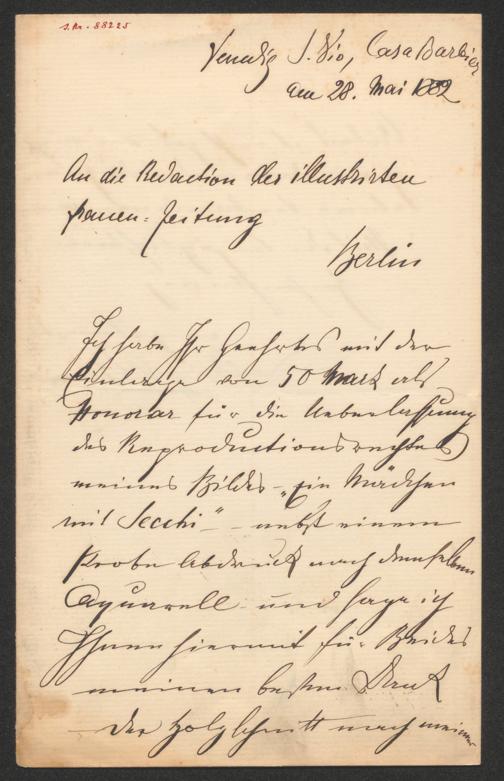 J.N. 88225
Venedig S. Vio, Casa Barbier
am 28. Mai 1882
An die Redaction der illustrirten
Frauen-Zeitung
Berlin
Ich habe Ihr Geehrtes mit der
Einlage von 50 Mark als
Honorar für die Ueberlassung
des Reproductionsrechtes
meines Bildes - „Ein Mädchen
mit Secchi" - nebst einem
Probe Abdruck nach demselben
Aquarell - und sage ich
Ihnen hiermit für Beides
meinen besten Dank
Der Holzschnitt nach meinem